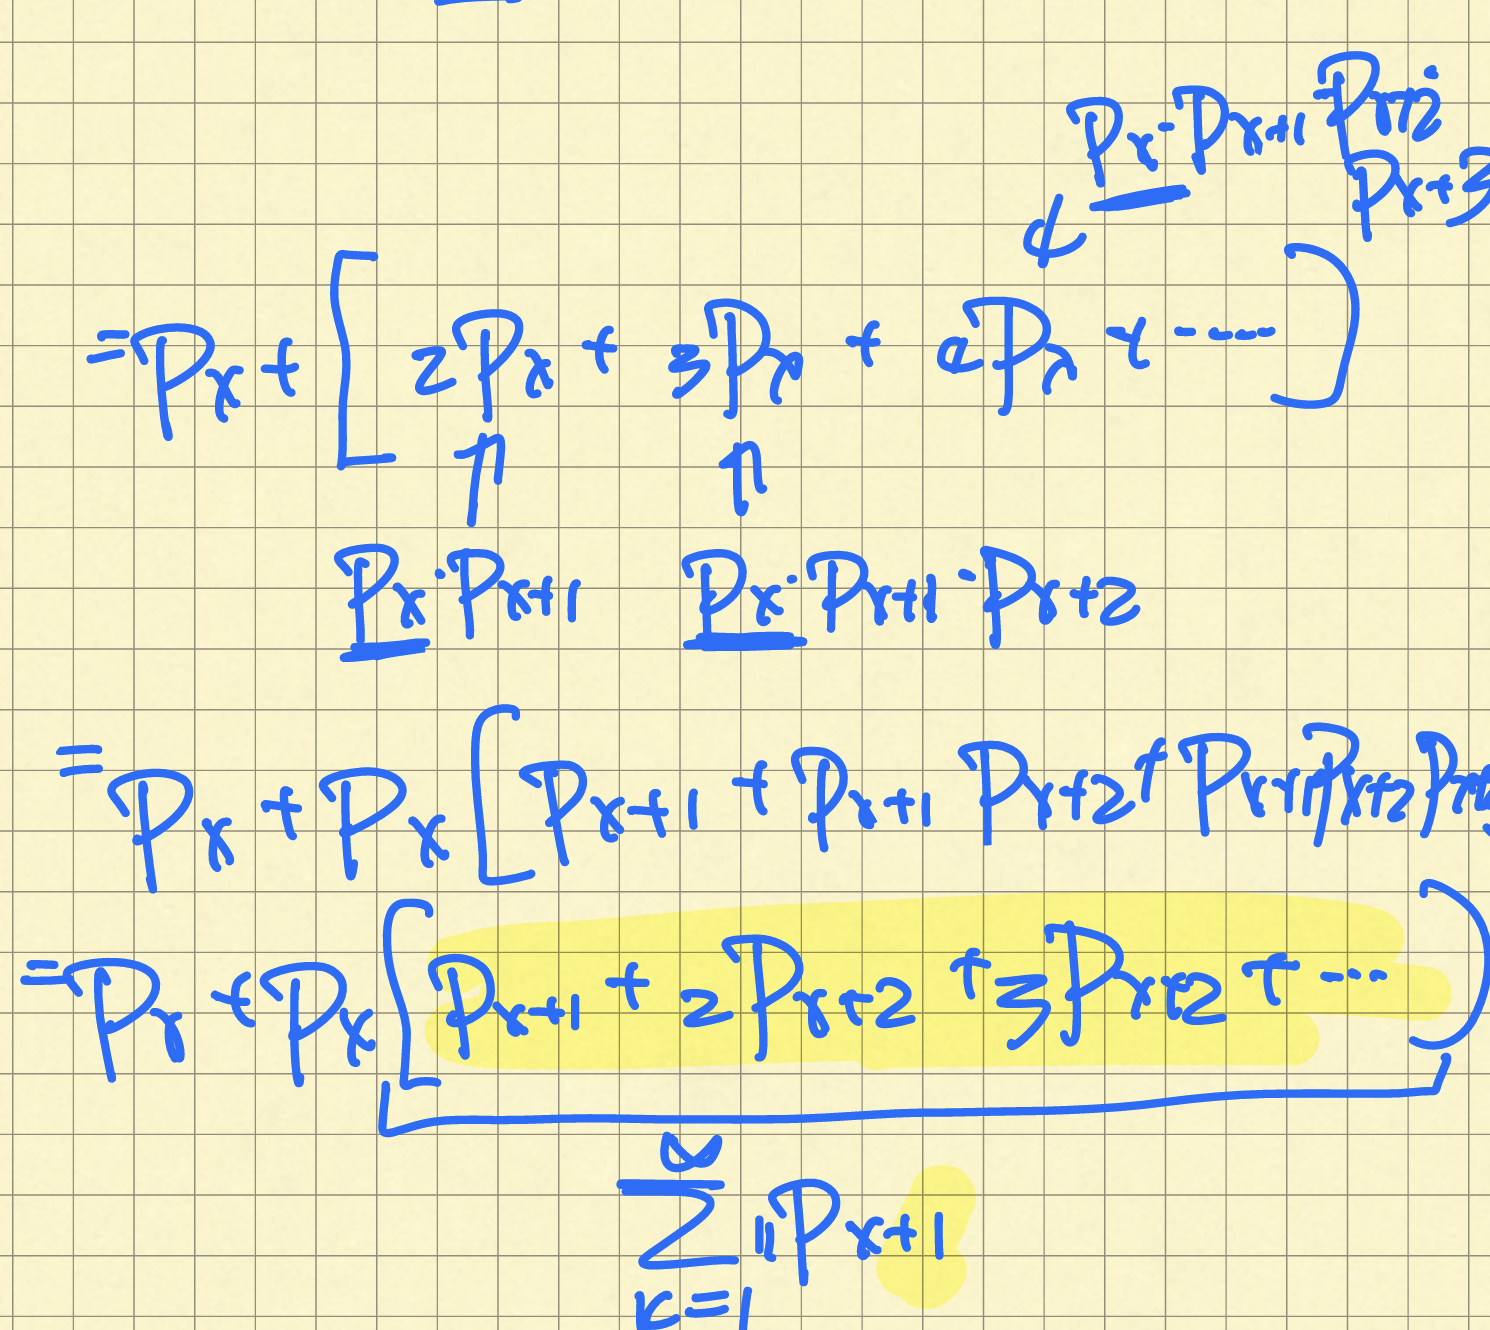 Px · Px+1 · Px+2 ·
Px+3
= Px + [ 2Px + 3Px + 4Px + ----- ]
Px · Px+1 Px · Px+1 · Px+2
= Px + Px [ Px+1 + Px+1 Px+2 + Px+1 Px+2 Px+3
= Px + Px [ Px+1 + 2Px+2 + 3Px+2 + --- ]
∞
Σ nPx+1
k=1